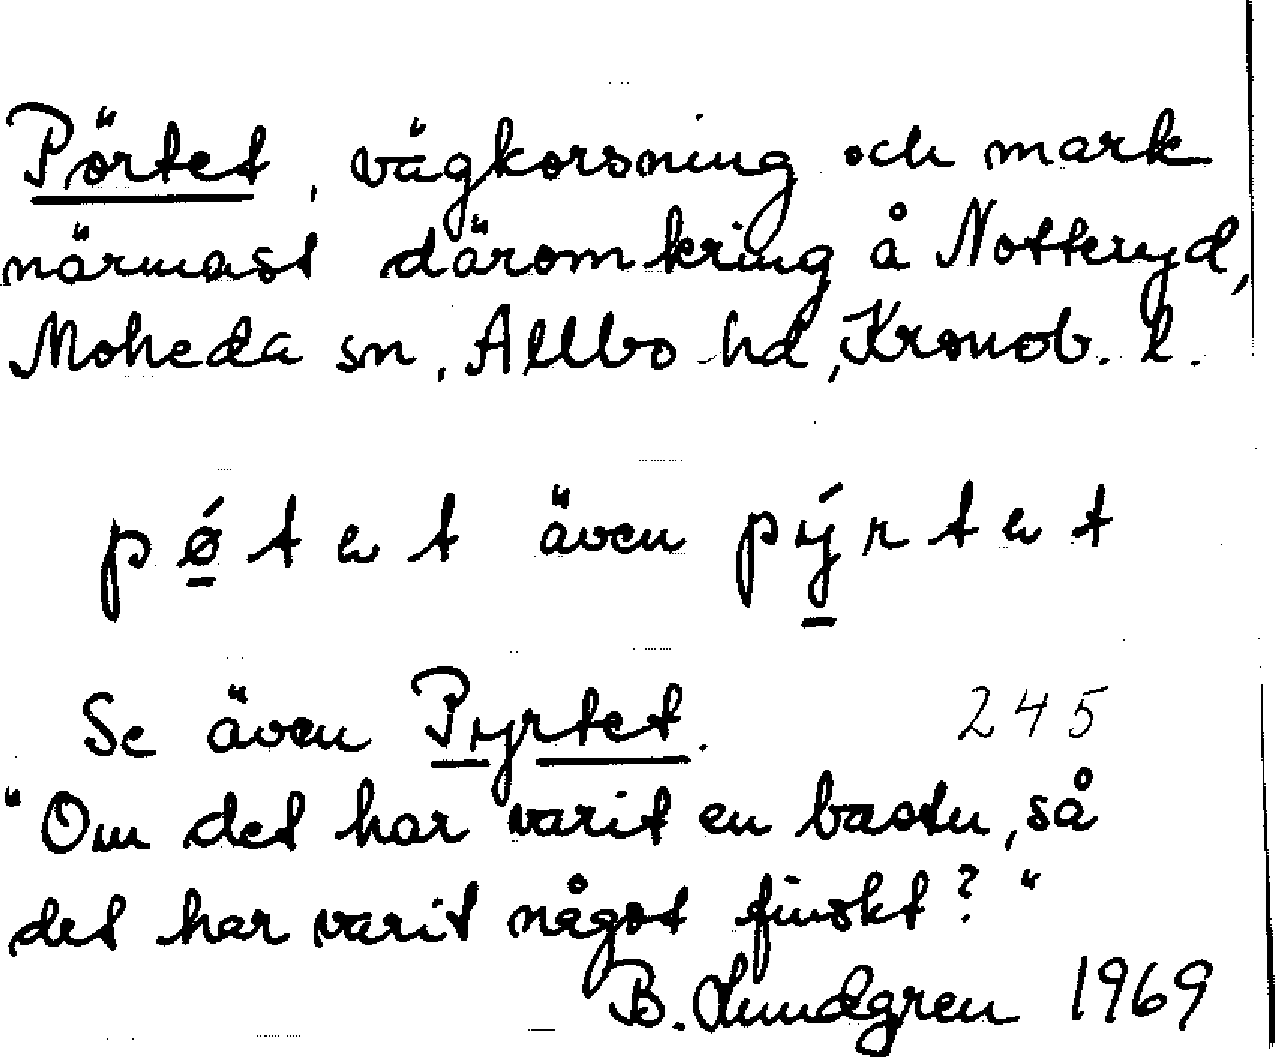 Pörtet, vägkorsning och mark
närmast däromkring å Notteryd,
Moheda sn, Allbo hd, Kronob. l.
pǿtet även pýrtet
Se även Pyrtet. 245
"Om det har varit en bastu, så
det har varit något finskt?"
B. Lundgren 1969